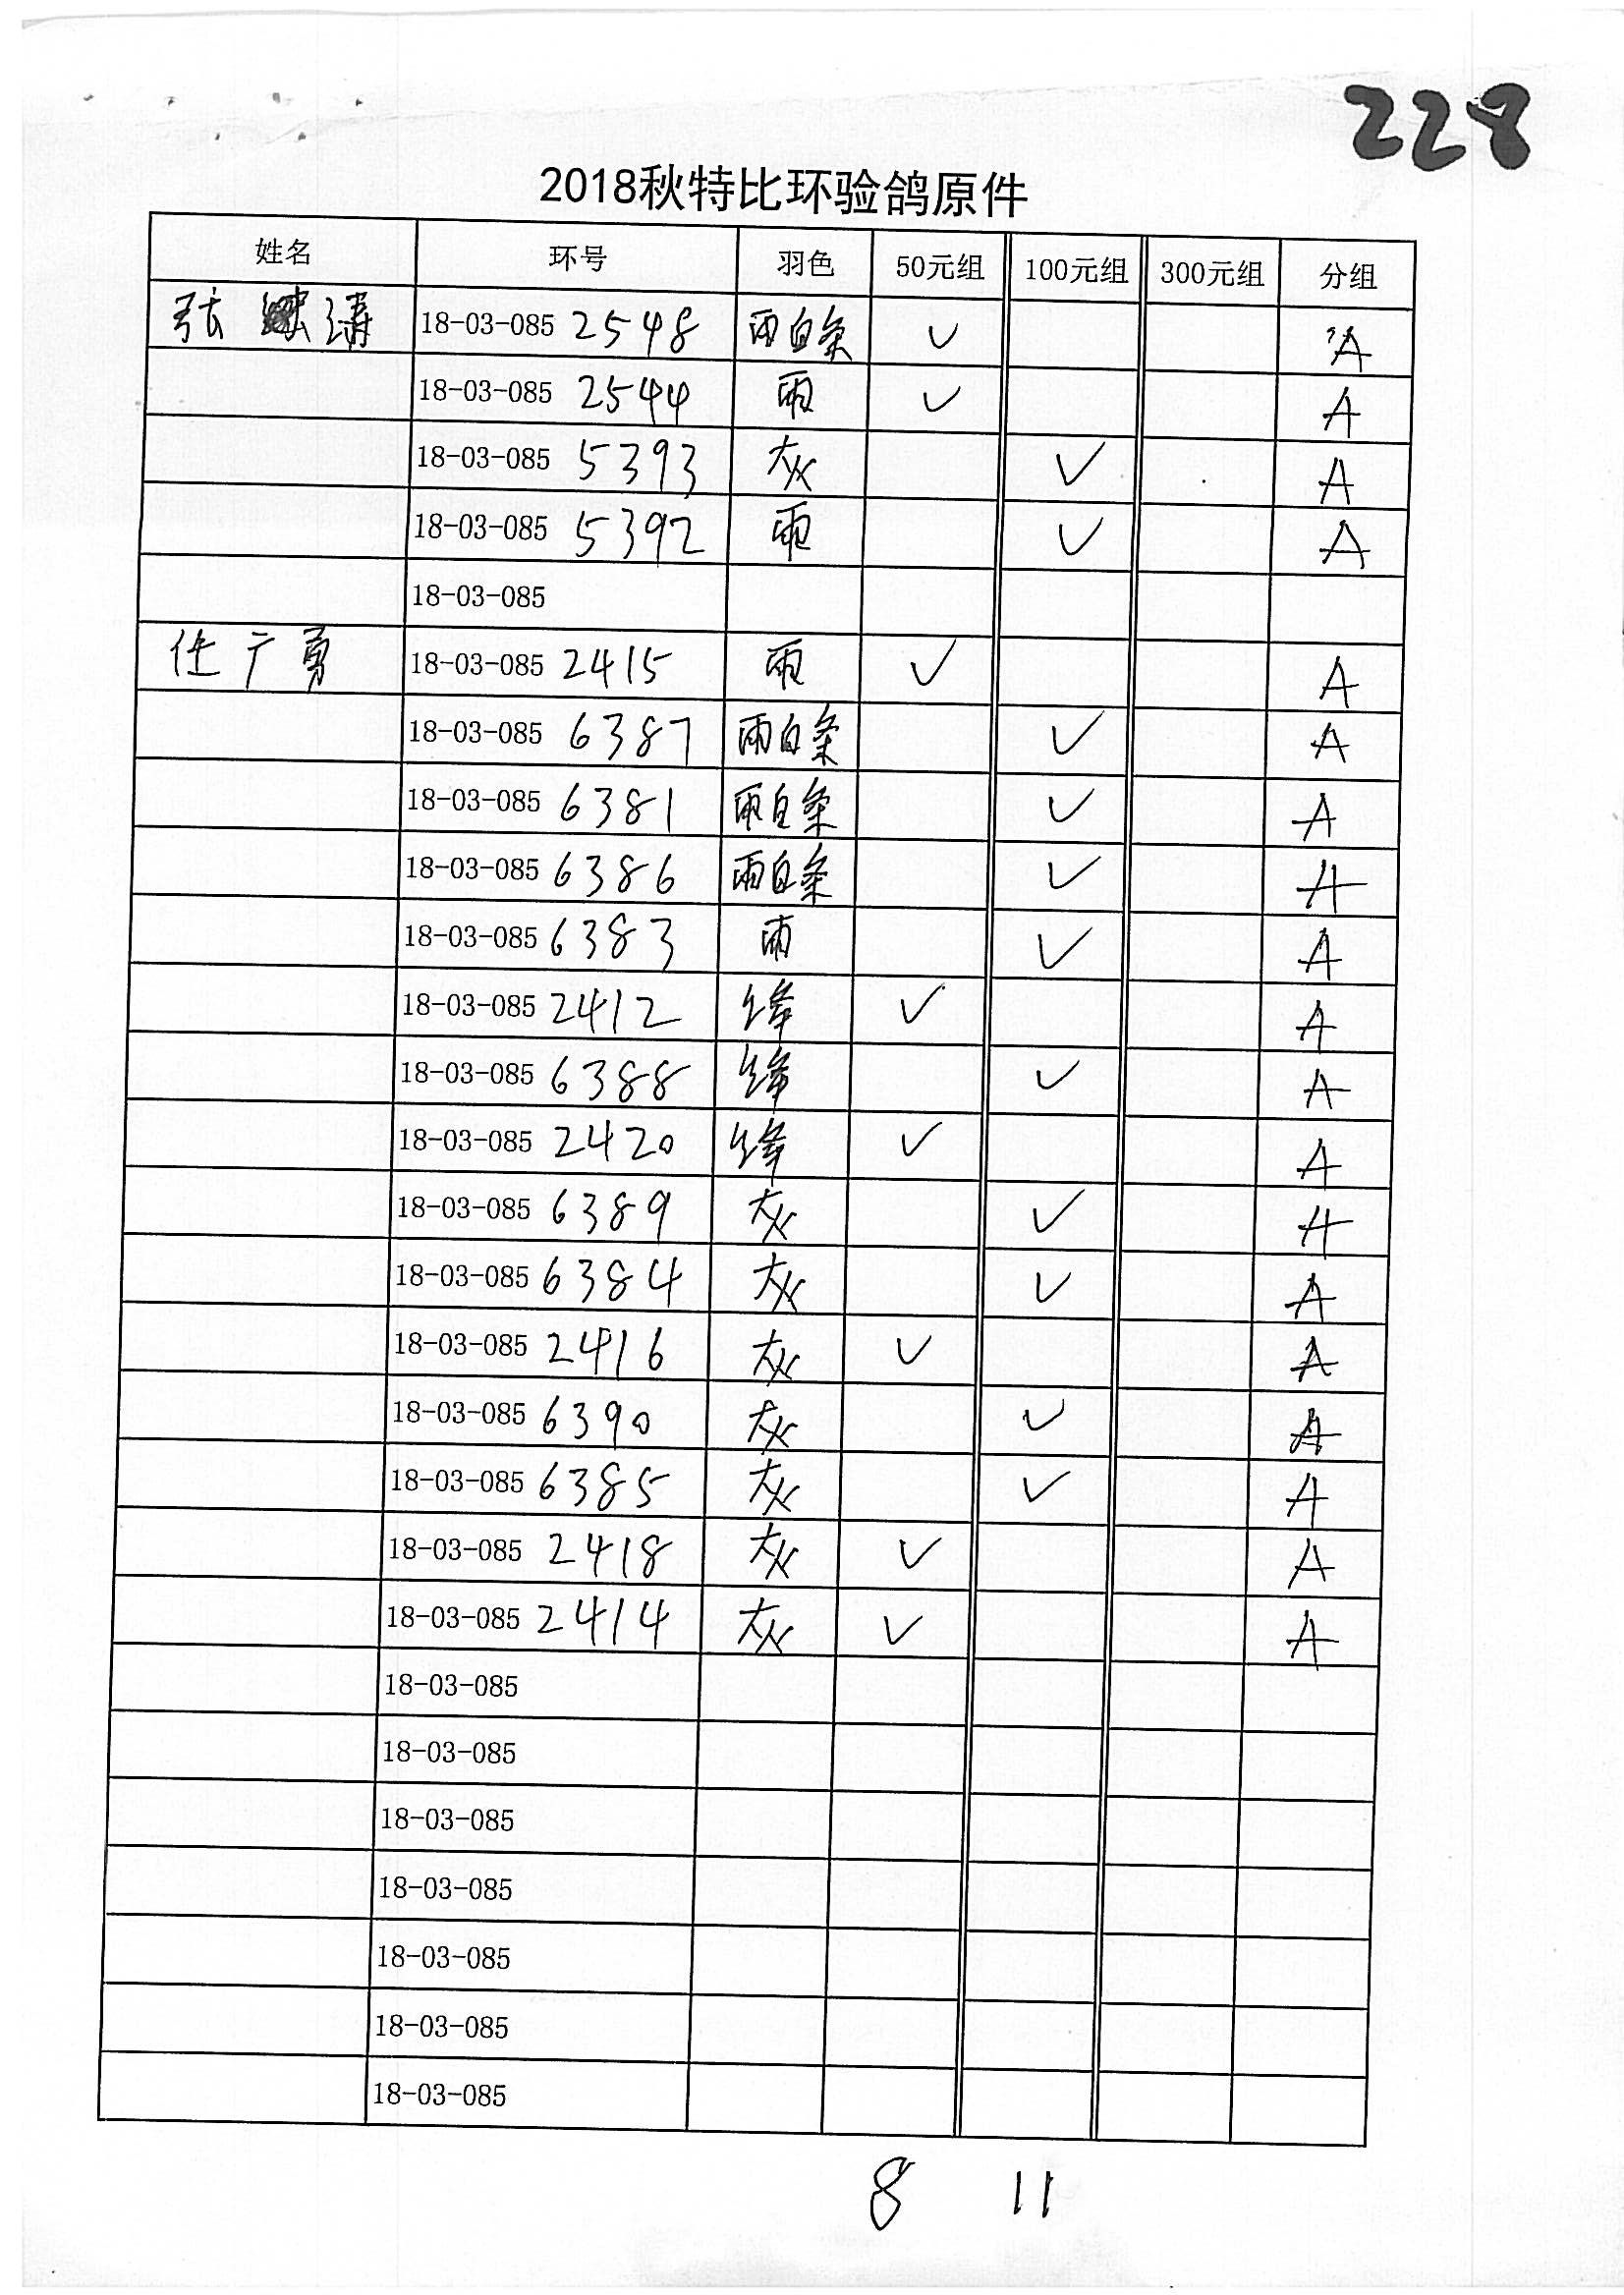 228
2018秋特比环验鸽原件
姓名 环号 羽色 50元组 100元组 300元组 分组
张 18-03-085 2548 雨白条 ✓ A
18-03-085 2544 雨 ✓ A
18-03-085 5393 灰 ✓ A
18-03-085 5392 雨 ✓ A
18-03-085
任广勇 18-03-085 2415 雨 ✓ A
18-03-085 6387 雨白条 ✓ A
18-03-085 6381 雨白条 ✓ A
18-03-085 6386 雨白条 ✓ A
18-03-085 6383 雨 ✓ A
18-03-085 2412 绛 ✓ A
18-03-085 6388 绛 ✓ A
18-03-085 2420 绛 ✓ A
18-03-085 6389 灰 ✓ A
18-03-085 6384 灰 ✓ A
18-03-085 2416 灰 ✓ A
18-03-085 6390 灰 ✓ A
18-03-085 6385 灰 ✓ A
18-03-085 2418 灰 ✓ A
18-03-085 2414 灰 ✓ A
18-03-085
18-03-085
18-03-085
18-03-085
18-03-085
18-03-085
18-03-085
8 11